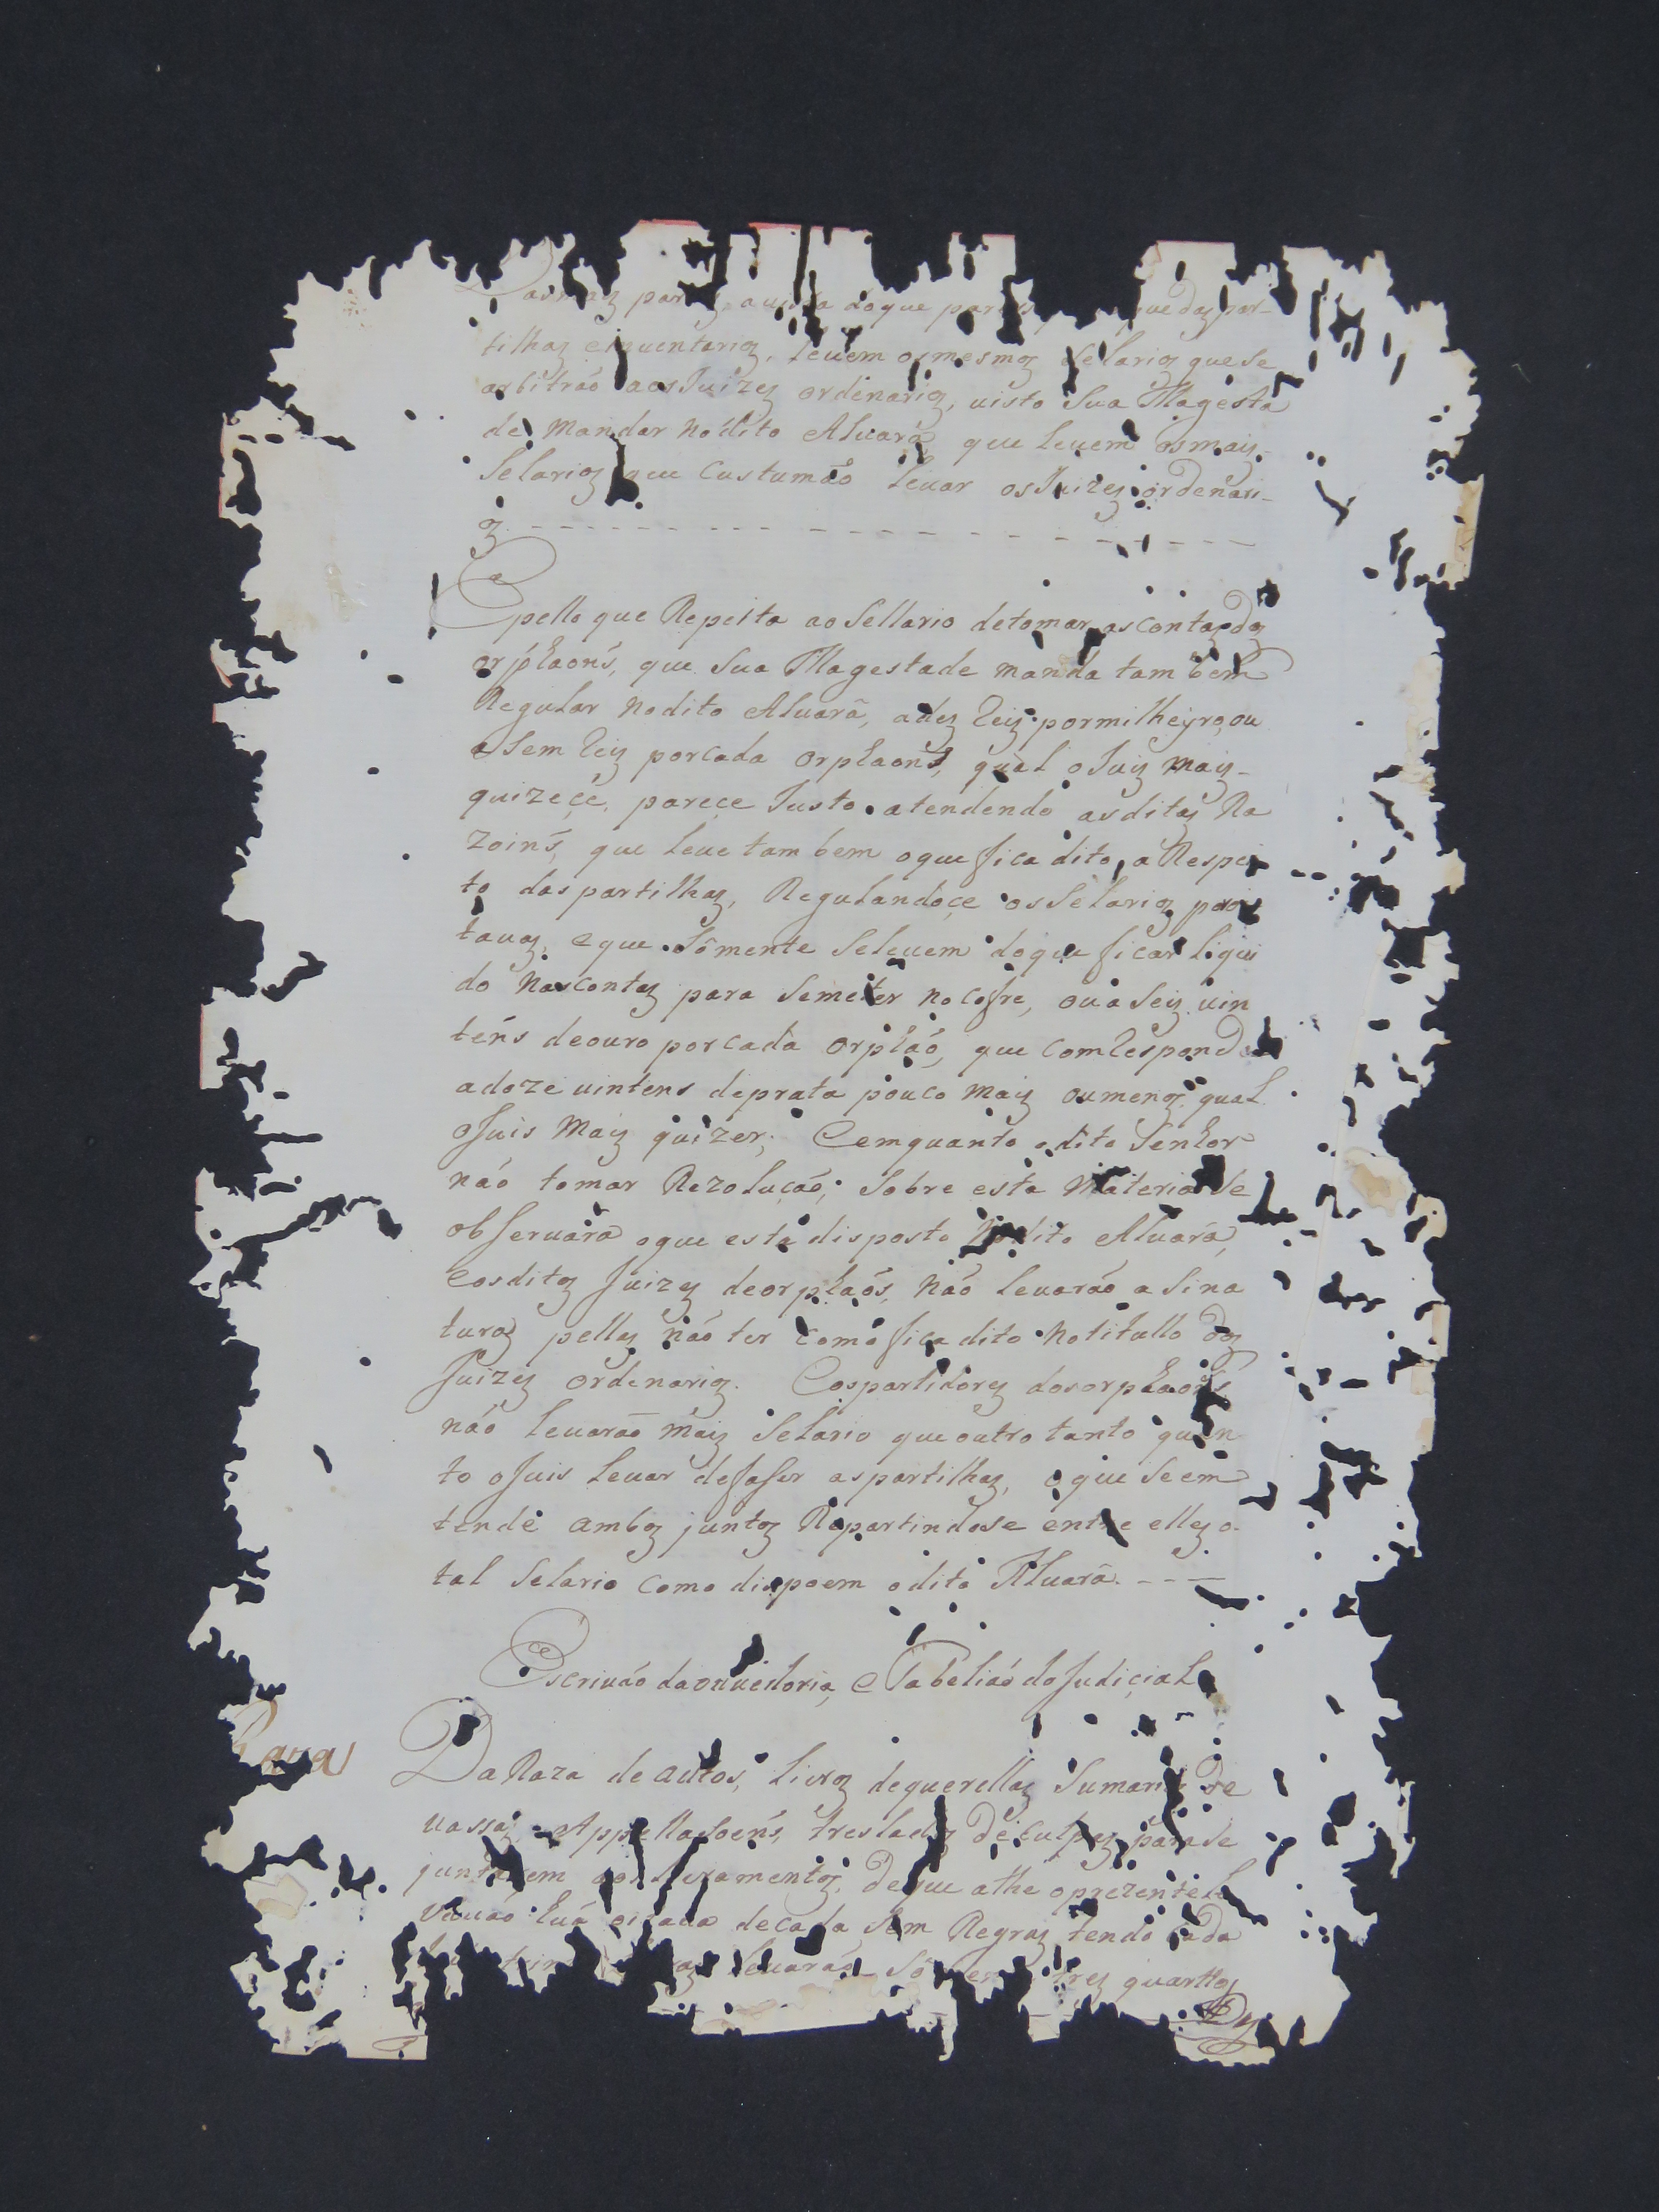 doque
tilhaz einventarioz, levem osmesmoz selarioz quese
arbitrão aosJuizez ordenarioz, visto Sua Magesta
de Mandar no dito Alvará que levem os maiz
Selarioz que Custumão levar osJuizez ordenari-
oz
E pello que Repeita ao Sellario detomar as contaz doz
orphaons, que Sua Magestade manda tam bem
Regular nodito Alvarâ, adez Reiz pormilheyro, ou
a Sem Reiz porcada orphaons, qual oJuiz maiz
quizeçe, parece Justo atendendo asditaz Ra
zoins, que leve tam bem oque fica dito, a Respei
to das partilhaz, Regulandoçe os Selarioz por oi
tavaz, eque Sômente Selevem doque ficar liqui
do nas contaz para Semeter no cofre, ou a Seiz vin
tens deouro porcada orphão, que comResponde
adoze vintens deprata pouco maiz oumenoz, qual
oJuis Maiz quizer; E emquanto odito Senhor
não tomar Rezolução, Sobre esta Materia Se
observará oque está disposto no dito Alvará,
eosditoz Juizez deorphaós, não levarão a Sina
turaz pellaz não ter como fica dito notitullo doz
Juizez ordenarioz. E ospartidorez dosorphaons
não levarão maiz Selario queoutro tanto quan
to oJuis levar defaser aspartilhaz, oque Seem
tende amboz juntoz Repartindose entre ellez o
tal Selario como dispoem odito Alvará.
Escrivão daouvedoria, e Tabelião doJudiçial
Raza
Da Raza de autos, livroz dequerellaz Sumarioz De
vassaz, Appellasoens, tresladoz deculpaz, paraSe
juntarem aos livramentoz, Deque athe oprezentele
vavão huã oitava decada Sem Regraz tendo cada
levarão Sómente trez quartoz